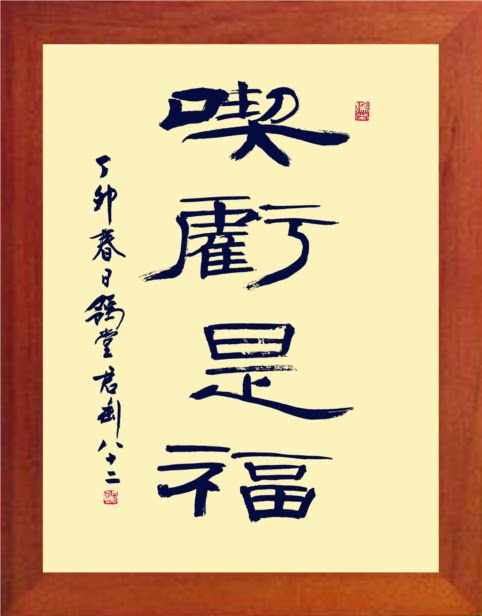 喫虧是福
丁卯暮春日錫堂君劍八十二